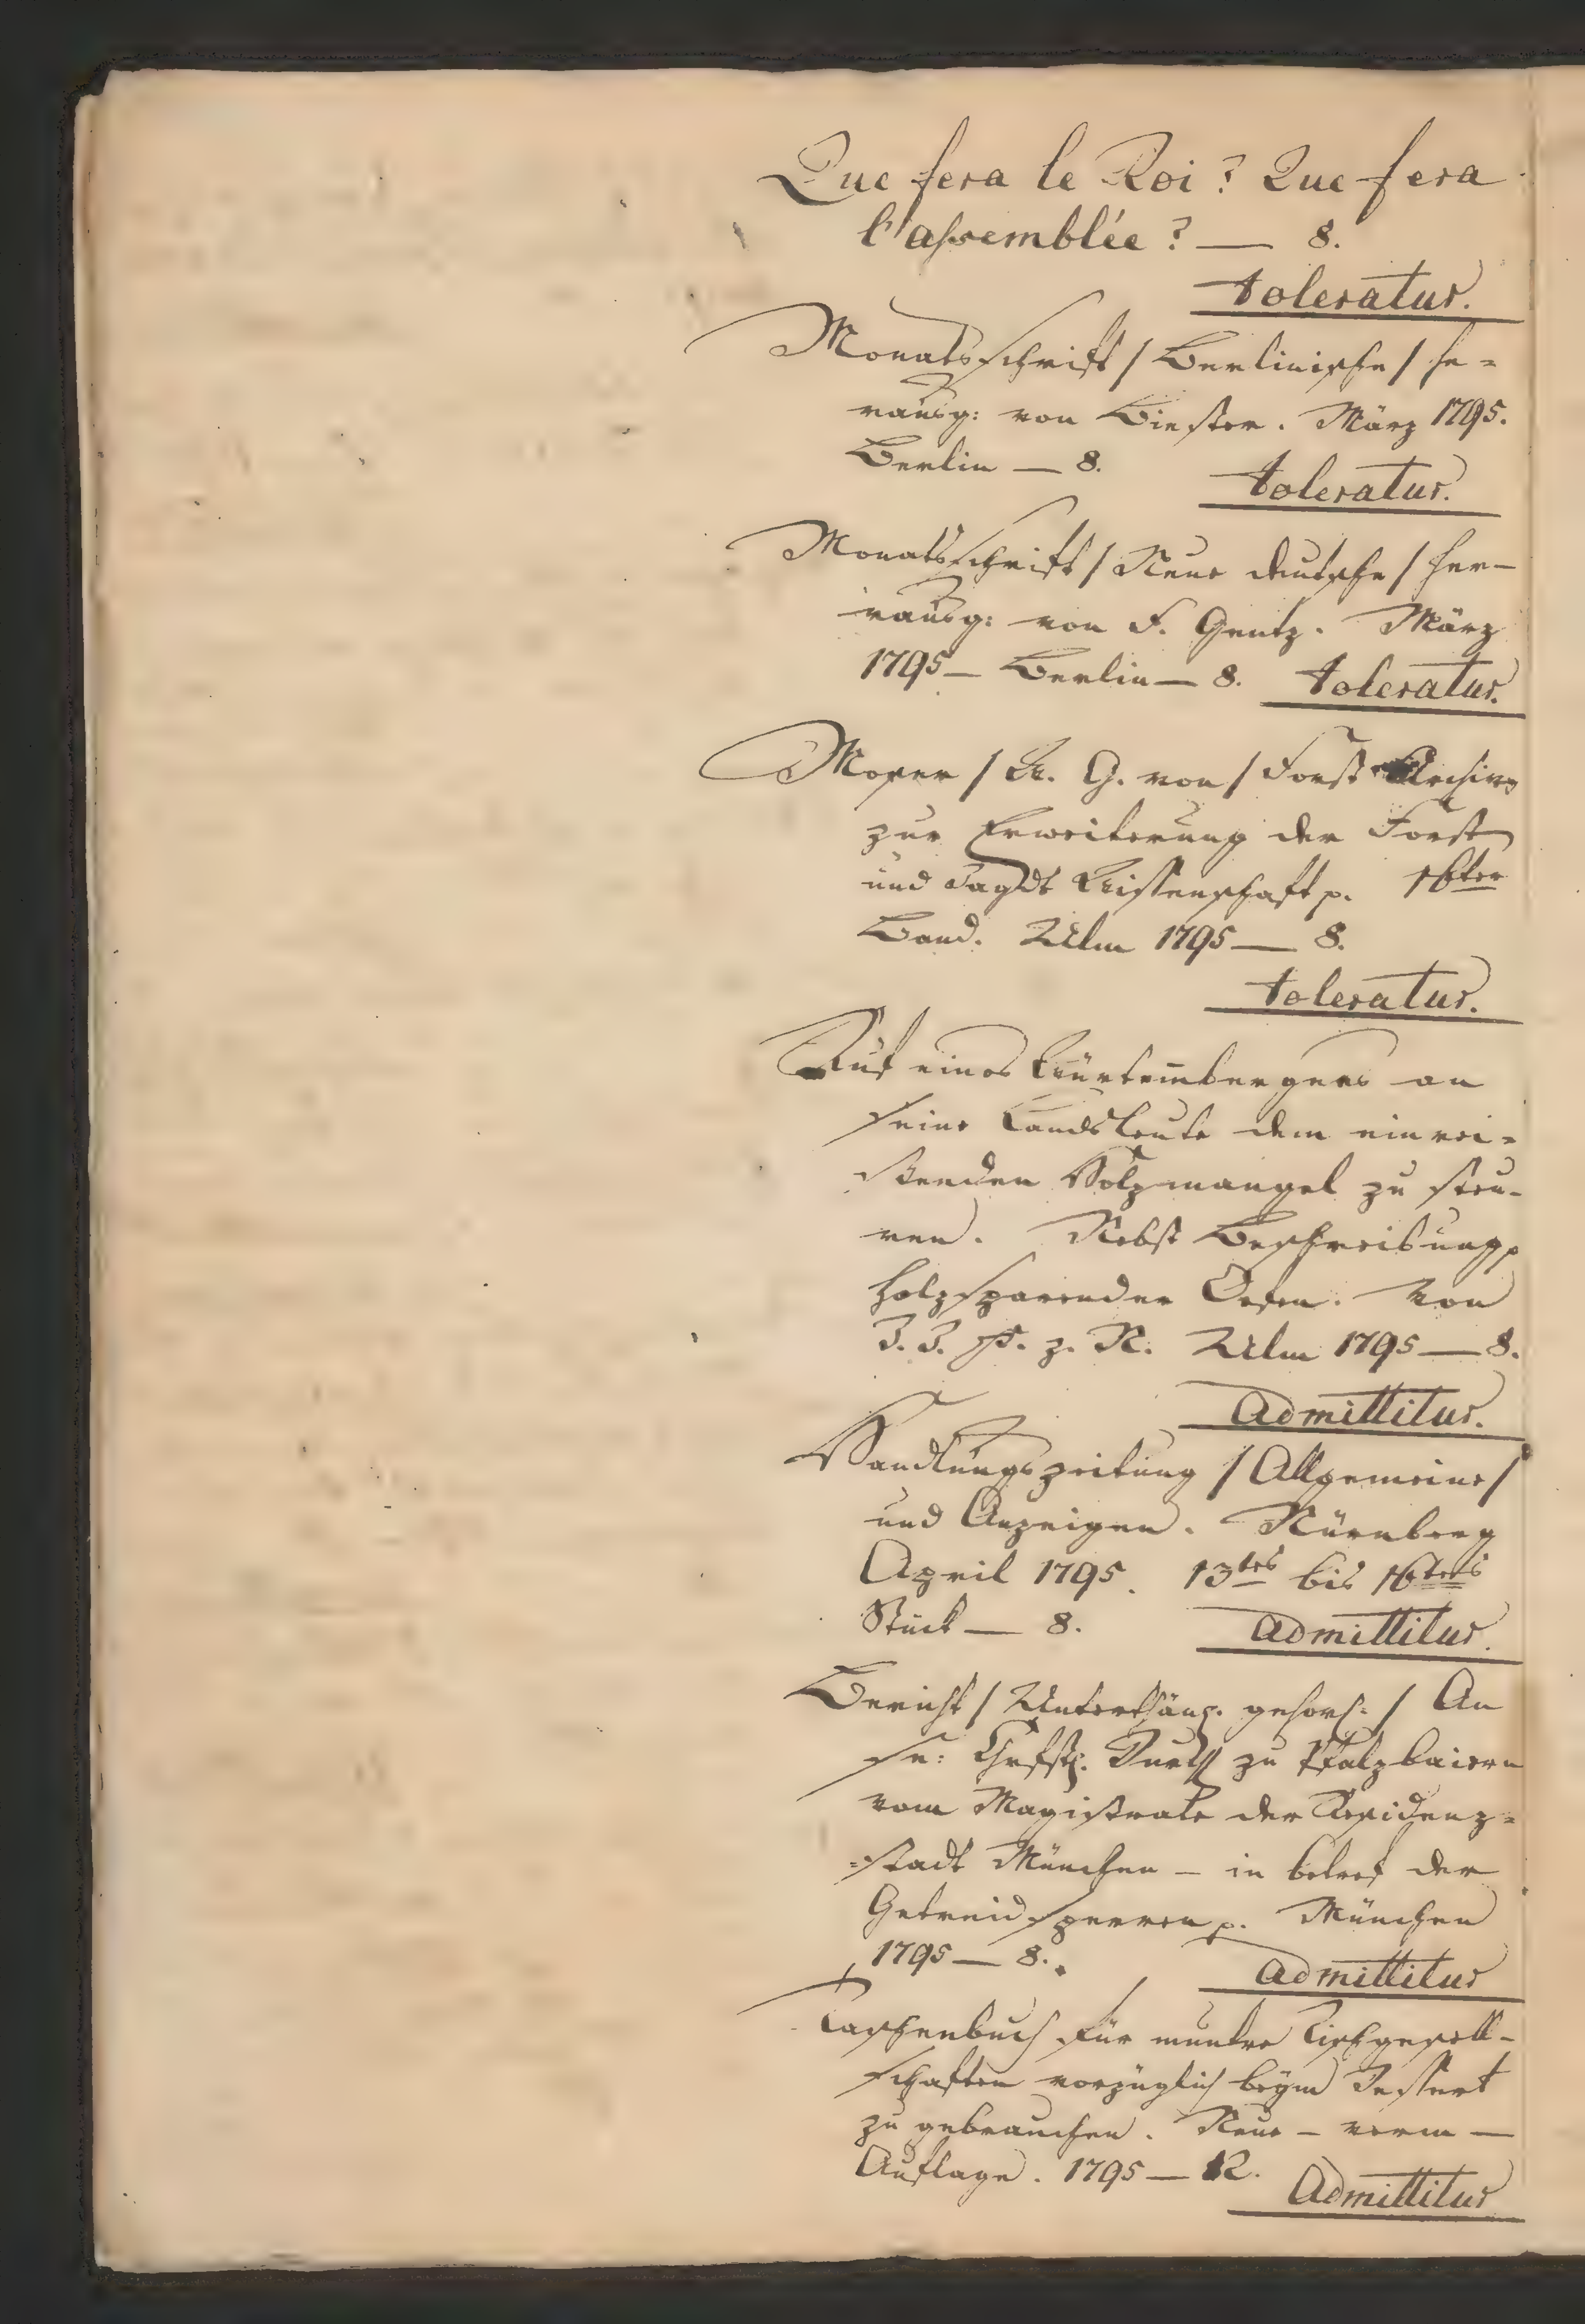 Que fera le Roi? Que fera
l'assemblée? — 8.
toleratur.
Monatsschrift / Berlinische / he=
rausg: von Biester. März 1795.
Berlin — 8.
toleratur.
Monatsschrift / Neue deutsche / her-
rausg: von F. Gentz. März
1795 — Berlin — 8. toleratur.
Moser / W. G. von / Forst Archiv
zur Erweiterung der Forst
und Jagdt Wissenschaft p. 16ter
Band. Ulm 1795 — 8.
toleratur.
Ruf eines Würtembergers an
seine Landsleute dem einrei=
ßenden Holzmangel zu steu-
ren. Nebst Beschreibung p
holzsparender Oefen. Von
J. J. P. z. N. Ulm 1795 — 8.
Admittitur.
Handlungszeitung / Allgemeine /
und Anzeigen. Nürnberg
April 1795. 13tes bis 16tes
Stück — 8. Admittitur.
Bericht / Unterthänig. gehors: / An
Se: Churfstl. Durchl zu Pfalzbaiern
vom Magistrate der Residenz=
=stadt München — in betref der
Getreidsperren p. München
1795 — 8. Admittitur
Taschenbuch für muntre Tischgesell-
schaften vorzüglich beym Dessert
zu gebrauchen. Neue — verm —
Auflage. 1795 — 12.
Admittitur